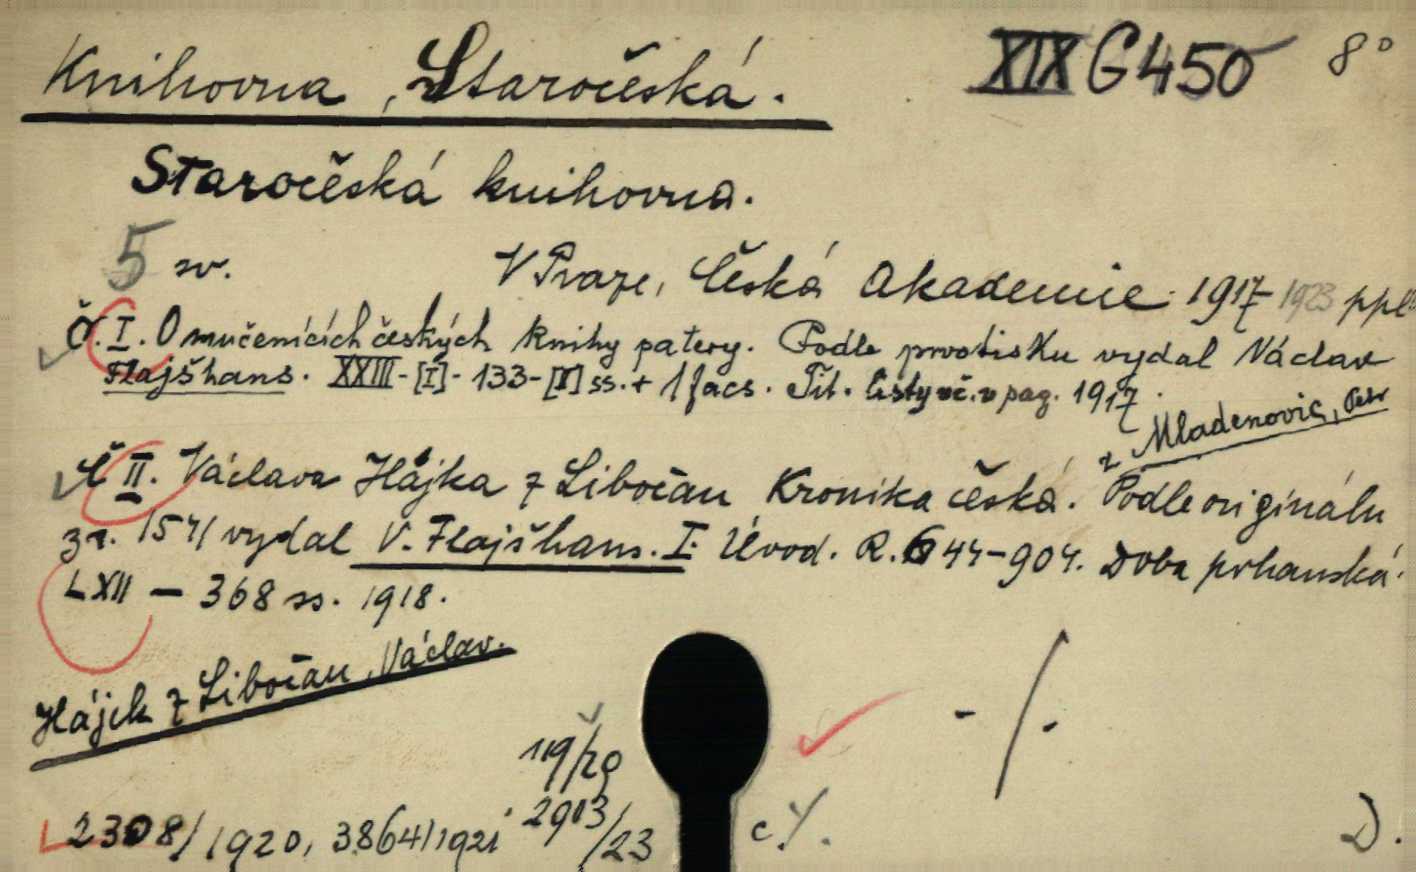 Knihovna, Staročeská. XIX G 450 8°
Staročeská knihovna.
5 sv. V Praze, Česká Akademie 1917-1923
Č. I. O mučenících českých knihy patery. Podle prvotisku vydal Václav
Flajšhans. XXIII-[I]-133-[I] ss. + 1 facs. Tit. listy vč. v pag. 1917.
z Mladenovic, Petr
Č II. Václava Hájka z Libočan Kronika česká. Podle originálu
z r. 1541 vydal V. Flajšhans. I. Úvod. R. 644-904. Doba pohanská.
LXII - 368 ss. 1918.
Hájek z Libočan, Václav.
119/29
2308/1920, 3864/1921 2903/23
D.